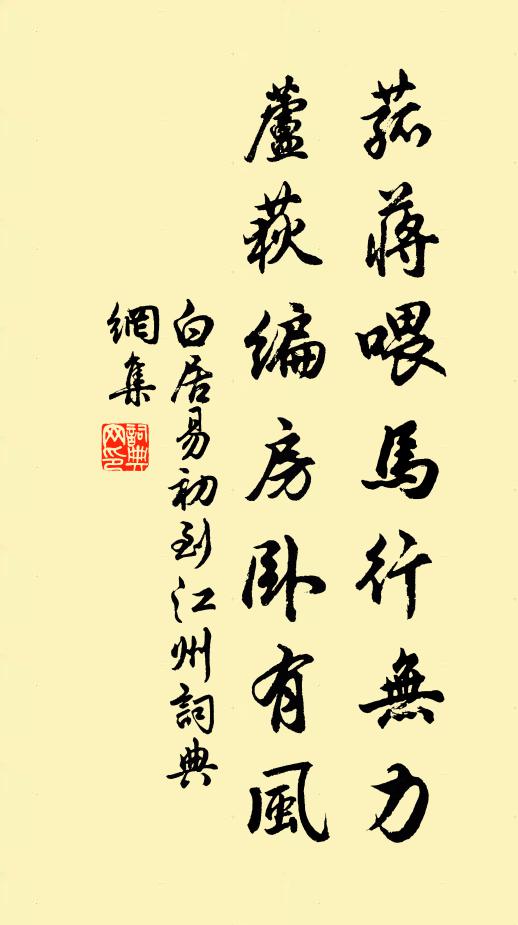 菰蔣喂馬行無力
蘆荻編房臥有風
白居易初到江州詞典
網集
詞典
网印